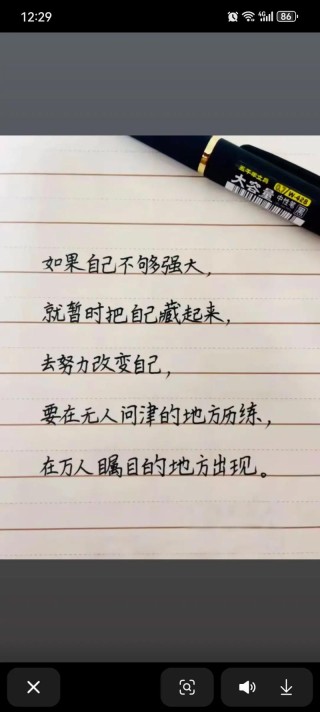 12:29
4G
86
大容量
中性笔
如果自己不够强大，
就暂时把自己藏起来，
去努力改变自己，
要在无人问津的地方历练，
在万人瞩目的地方出现。